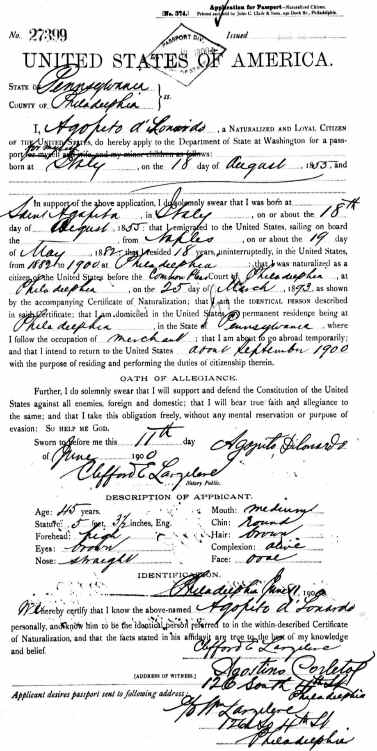 Application for Passport—Naturalized Citizen.
[No. 374.] Printed and sold by John C. Clark & Sons, 230 Dock St., Philadelphia.
No. 27399 Issued
PASSPORT DIV
UNITED STATES OF AMERICA.
STATE OF Pennsylvania
COUNTY OF Philadelphia } ss.
I, Agopito d'Lonardo, a NATURALIZED AND LOYAL CITIZEN
OF THE UNITED STATES, do hereby apply to the Department of State at Washington for a pass-
port for myself and wife, and my minor children as follows:
for myself
born at Italy, on the 18 day of August, 1855, and
In support of the above application, I do solemnly swear that I was born at
Saint Agapito, in Italy, on or about the 18th
day of August, 1855; that I emigrated to the United States, sailing on board
the , from Naples, on or about the 19 day
of May, 1882; that I resided 18 years, uninterruptedly, in the United States,
from 1882 to 1900 at Philadelphia; that I was naturalized as a
citizen of the United States before the Common Pleas Court of Philadelphia, at
Philadelphia, on the 25 day of March, 1893, as shown
by the accompanying Certificate of Naturalization; that I am the IDENTICAL PERSON described
in said Certificate; that I am domiciled in the United States, my permanent residence being at
Philadelphia, in the State of Pennsylvania, where
I follow the occupation of merchant; that I am about to go abroad temporarily;
and that I intend to return to the United States about September 1900
with the purpose of residing and performing the duties of citizenship therein.
OATH OF ALLEGIANCE.
Further, I do solemnly swear that I will support and defend the Constitution of the United
States against all enemies, foreign and domestic; that I will bear true faith and allegiance to
the same; and that I take this obligation freely, without any mental reservation or purpose of
evasion: SO HELP ME GOD.
Sworn to before me this 11th day
of June, 1900 Agopito d'Lonardo
Clifford E Larzelere
Notary Public.
DESCRIPTION OF APPLICANT.
Age: 45 years. Mouth: medium
Stature: 5 feet, 3½ inches, Eng. Chin: Round
Forehead: high Hair: brown
Eyes: brown Complexion: olive
Nose: straight Face: oval
IDENTIFICATION.
Philadelphia June 11, 1900
We hereby certify that I know the above-named Agopito d'Lonardo
personally, and know him to be the identical person referred to in the within-described Certificate
of Naturalization, and that the facts stated in his affidavit are true to the best of my knowledge
and belief.
Clifford E Larzelere
Agostino
[ADDRESS OF WITNESS.] South
Philadelphia
Applicant desires passport sent to following address:
c/o Wm Larzelere
So 4th St
Philadelphia